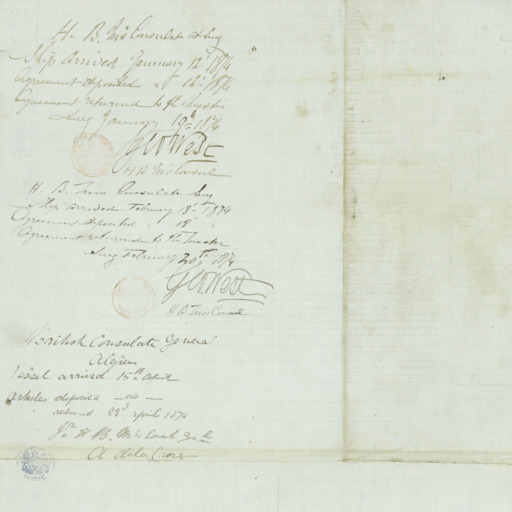 H. B. M's Consulate at Suez
Ship arrived January 12th 1874
Agreement deposited " 12th 1874
Agreement returned to the Master
Suez January 19th 1874
Geo West
H B M's Consul
H. B. M's Consulate Suez
Ship arrived February 18th 1874
Agreement deposited " 18 "
Agreement returned to the Master
Suez February 20th 1874
Geo West
H B M's Consul
British Consulate General
Algiers
Vessel arrived 15th April
Articles deposited — do —
returned 23d April 1874
H. B. M's Consul Genl